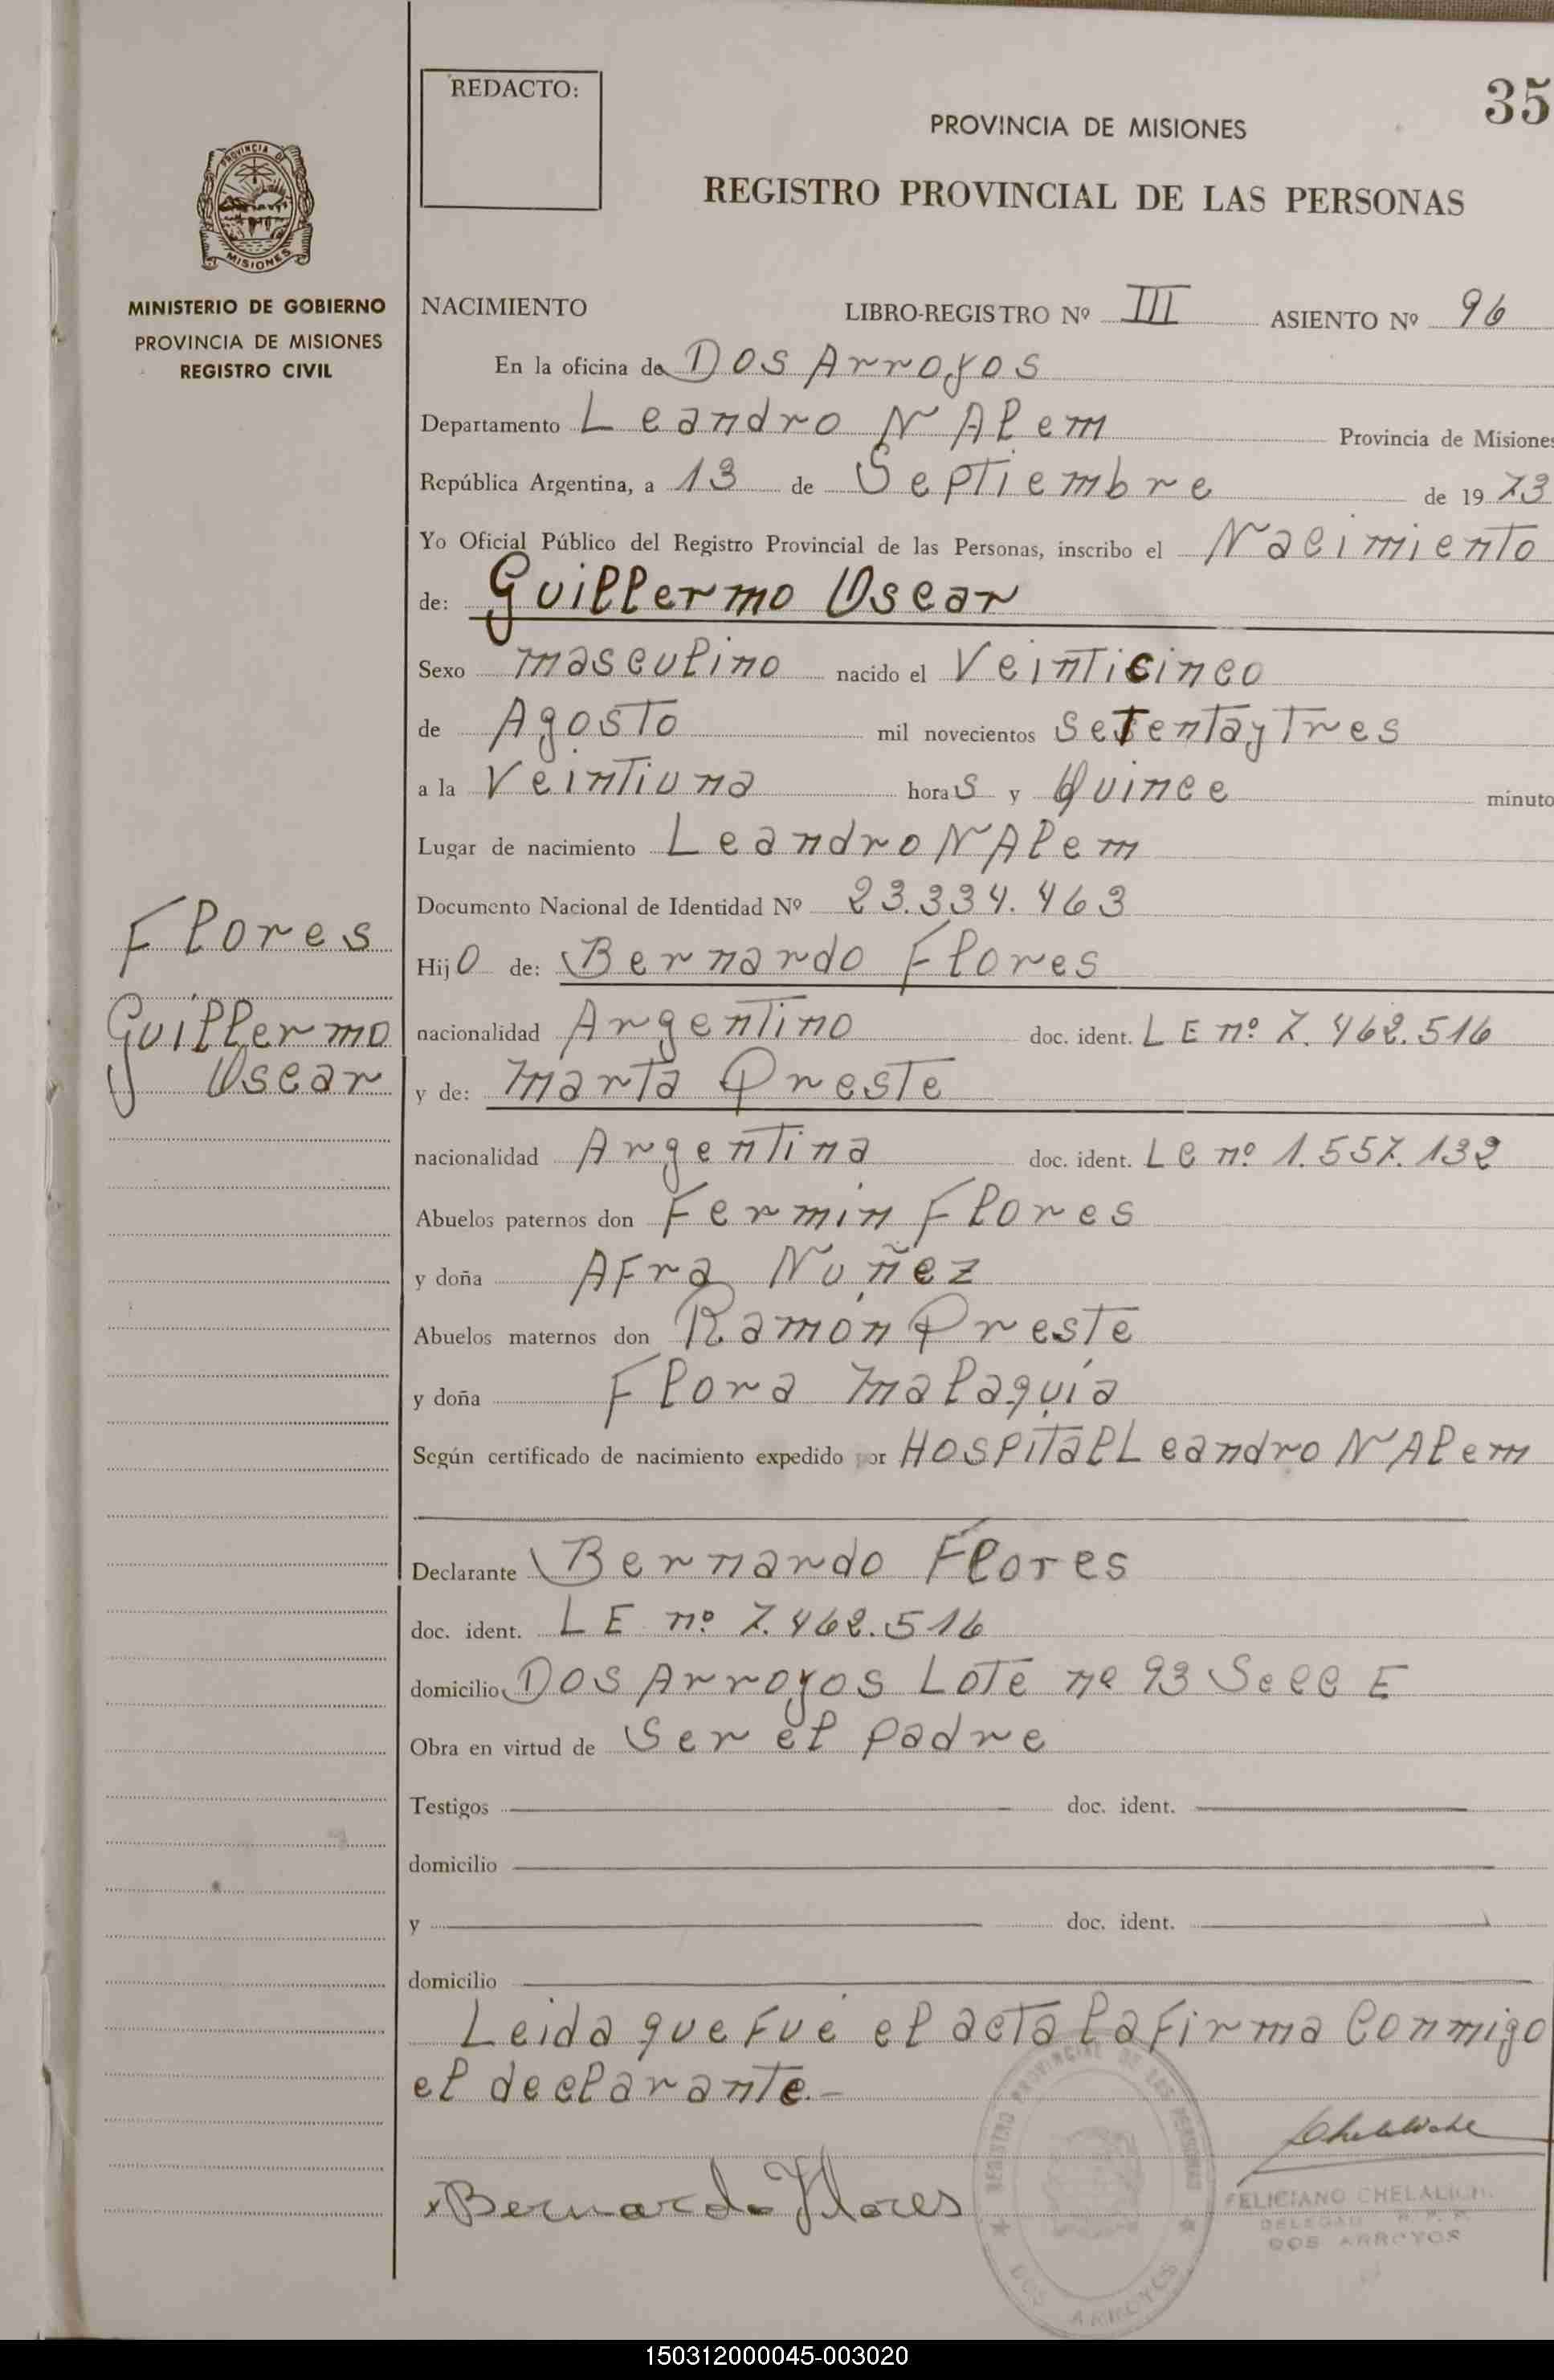 REDACTO:
35
PROVINCIA DE MISIONES
REGISTRO PROVINCIAL DE LAS PERSONAS
PROVINCIA DE
MISIONES
MINISTERIO DE GOBIERNO
PROVINCIA DE MISIONES
REGISTRO CIVIL
NACIMIENTO LIBRO-REGISTRO Nº III ASIENTO Nº 96
En la oficina de Dos Arroyos
Departamento Leandro N Alem Provincia de Misiones
República Argentina, a 13 de Septiembre de 1973
Yo Oficial Público del Registro Provincial de las Personas, inscribo el Nacimiento
de: Guillermo Oscar
Sexo masculino nacido el Veinticinco
de Agosto mil novecientos setenta y Tres
a la Veintiuna horas y Quince minuto
Lugar de nacimiento Leandro N Alem
Documento Nacional de Identidad Nº 23.334.463
Flores
Guillermo
Oscar
Hijo de: Bernardo Flores
nacionalidad Argentino doc. ident. LE nº 7.462.516
y de: Marta Preste
nacionalidad Argentina doc. ident. LC nº 1.557.132
Abuelos paternos don Fermin Flores
y doña Afra Nuñez
Abuelos maternos don Ramón Preste
y doña Flora Malaquía
Según certificado de nacimiento expedido por Hospital Leandro N Alem
Declarante Bernardo Flores
doc. ident. LE nº 7.462.516
domicilio Dos Arroyos Lote nº 93 Secc E
Obra en virtud de Ser el padre
Testigos doc. ident.
domicilio
y doc. ident.
domicilio
Leida que fué el acta la firma conmigo
el declarante.-
x Bernardo Flores
REGISTRO PROVINCIAL DE LAS PERSONAS
DOS ARROYOS
FELICIANO CHELALICH
DOS ARROYOS
150312000045-003020